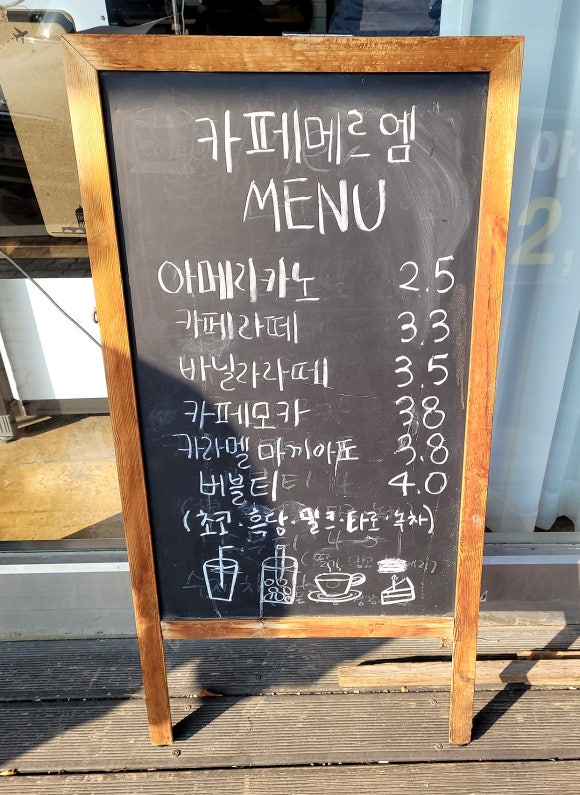 카페메르엠
MENU
아메리카노 2.5
카페라떼 3.3
바닐라라떼 3.5
카페모카 3.8
카라멜 마끼아또 3.8
버블티 4.0
(초코·흑당·밀크·타로·녹차)
아
2,